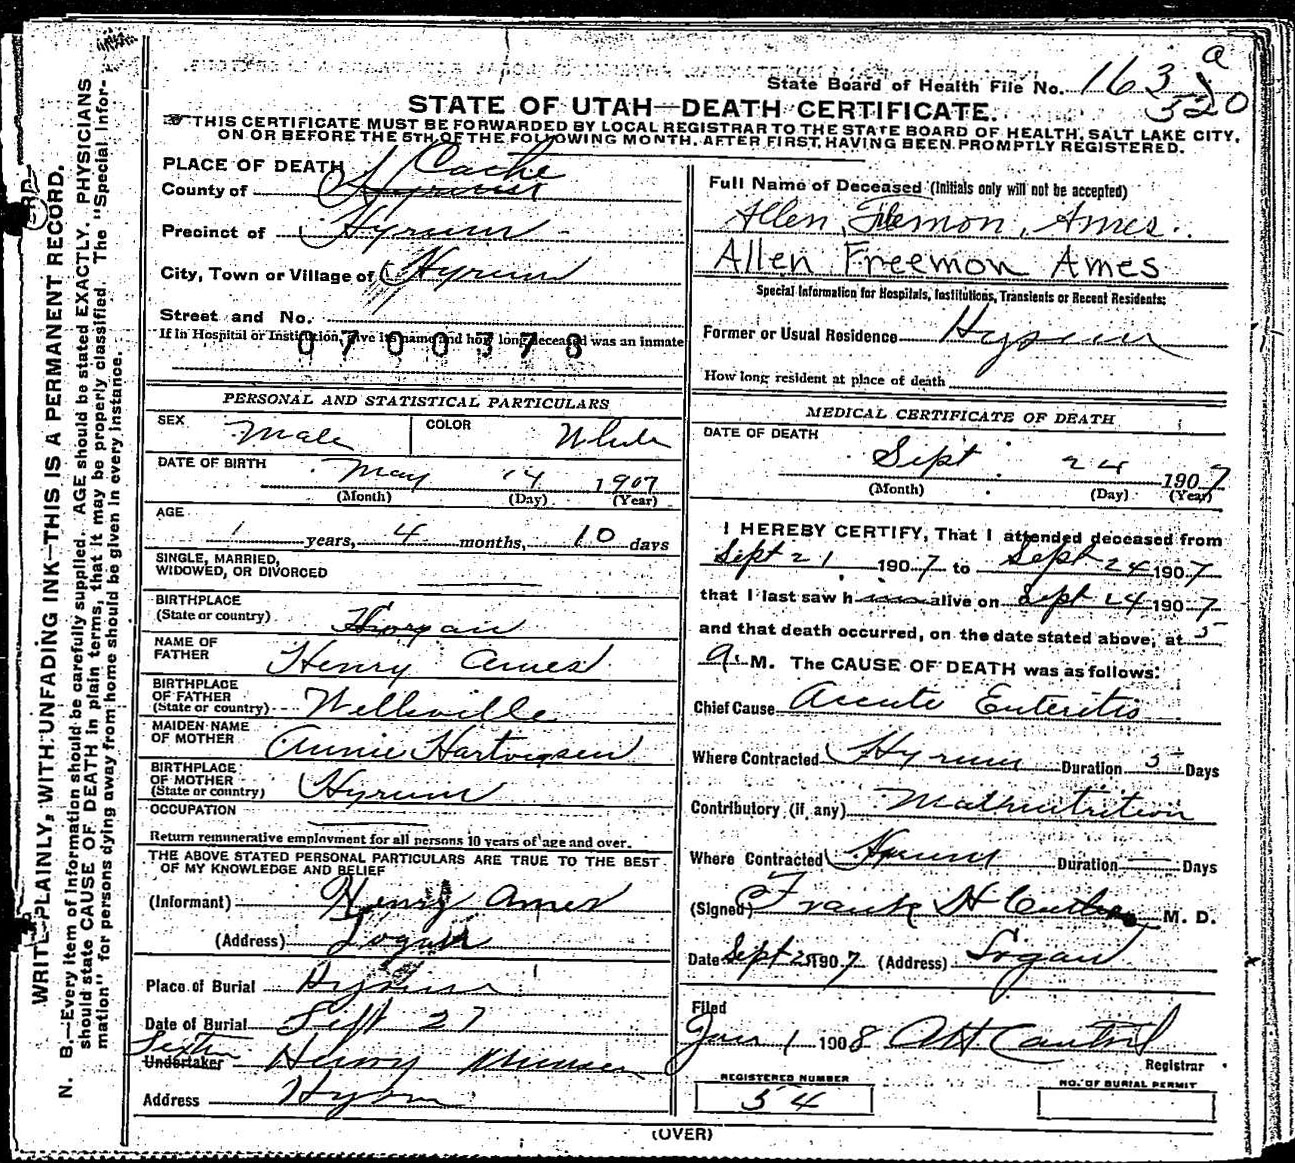 State Board of Health File No. 163 a
520
STATE OF UTAH—DEATH CERTIFICATE.
THIS CERTIFICATE MUST BE FORWARDED BY LOCAL REGISTRAR TO THE STATE BOARD OF HEALTH, SALT LAKE CITY,
ON OR BEFORE THE 5TH OF THE FOLLOWING MONTH, AFTER FIRST HAVING BEEN PROMPTLY REGISTERED.
WRITE PLAINLY, WITH UNFADING INK—THIS IS A PERMANENT RECORD.
N. B.—Every item of information should be carefully supplied. AGE should be stated EXACTLY. PHYSICIANS
should state CAUSE OF DEATH in plain terms, that it may be properly classified. The "Special Infor-
mation" for persons dying away from home should be given in every instance.
PLACE OF DEATH
County of Hyrum Cache
Precinct of Hyrum
City, Town or Village of Hyrum
Street and No.
If in Hospital or Institution, give its name and how long deceased was an inmate
0700378
PERSONAL AND STATISTICAL PARTICULARS
SEX Male COLOR White
DATE OF BIRTH May 14 1907
(Month) (Day) (Year)
AGE
1 years, 4 months, 10 days
SINGLE, MARRIED,
WIDOWED, OR DIVORCED
BIRTHPLACE
(State or country)
NAME OF
FATHER Henry Ames
BIRTHPLACE
OF FATHER
(State or country) Wellsville
MAIDEN NAME
OF MOTHER Annie Hartvigsen
BIRTHPLACE
OF MOTHER
(State or country) Hyrum
OCCUPATION
Return remunerative employment for all persons 10 years of age and over.
THE ABOVE STATED PERSONAL PARTICULARS ARE TRUE TO THE BEST
OF MY KNOWLEDGE AND BELIEF
(Informant) Henry Ames
(Address) Logan
Place of Burial Hyrum
Date of Burial Sept 27
Sexton
Undertaker Henry
Address Hyrum
Full Name of Deceased (Initials only will not be accepted)
Allen Ames
Allen Freemon Ames
Special Information for Hospitals, Institutions, Transients or Recent Residents:
Former or Usual Residence Hyrum
How long resident at place of death
MEDICAL CERTIFICATE OF DEATH
DATE OF DEATH
Sept 24 1907
(Month) (Day) (Year)
I HEREBY CERTIFY, That I attended deceased from
Sept 21 1907 to Sept 24 1907
that I last saw him alive on Sept 24 1907
and that death occurred, on the date stated above, at 5
a. M. The CAUSE OF DEATH was as follows:
Chief Cause Accute Enteritis
Where Contracted Hyrum Duration 5 Days
Contributory (if any) Malnutrition
Where Contracted Hyrum Duration Days
(Signed) Frank H M. D.
Date Sept 25 1907 (Address) Logan
Filed
Jan 1 1908 Registrar
REGISTERED NUMBER
54
NO. OF BURIAL PERMIT
(OVER)